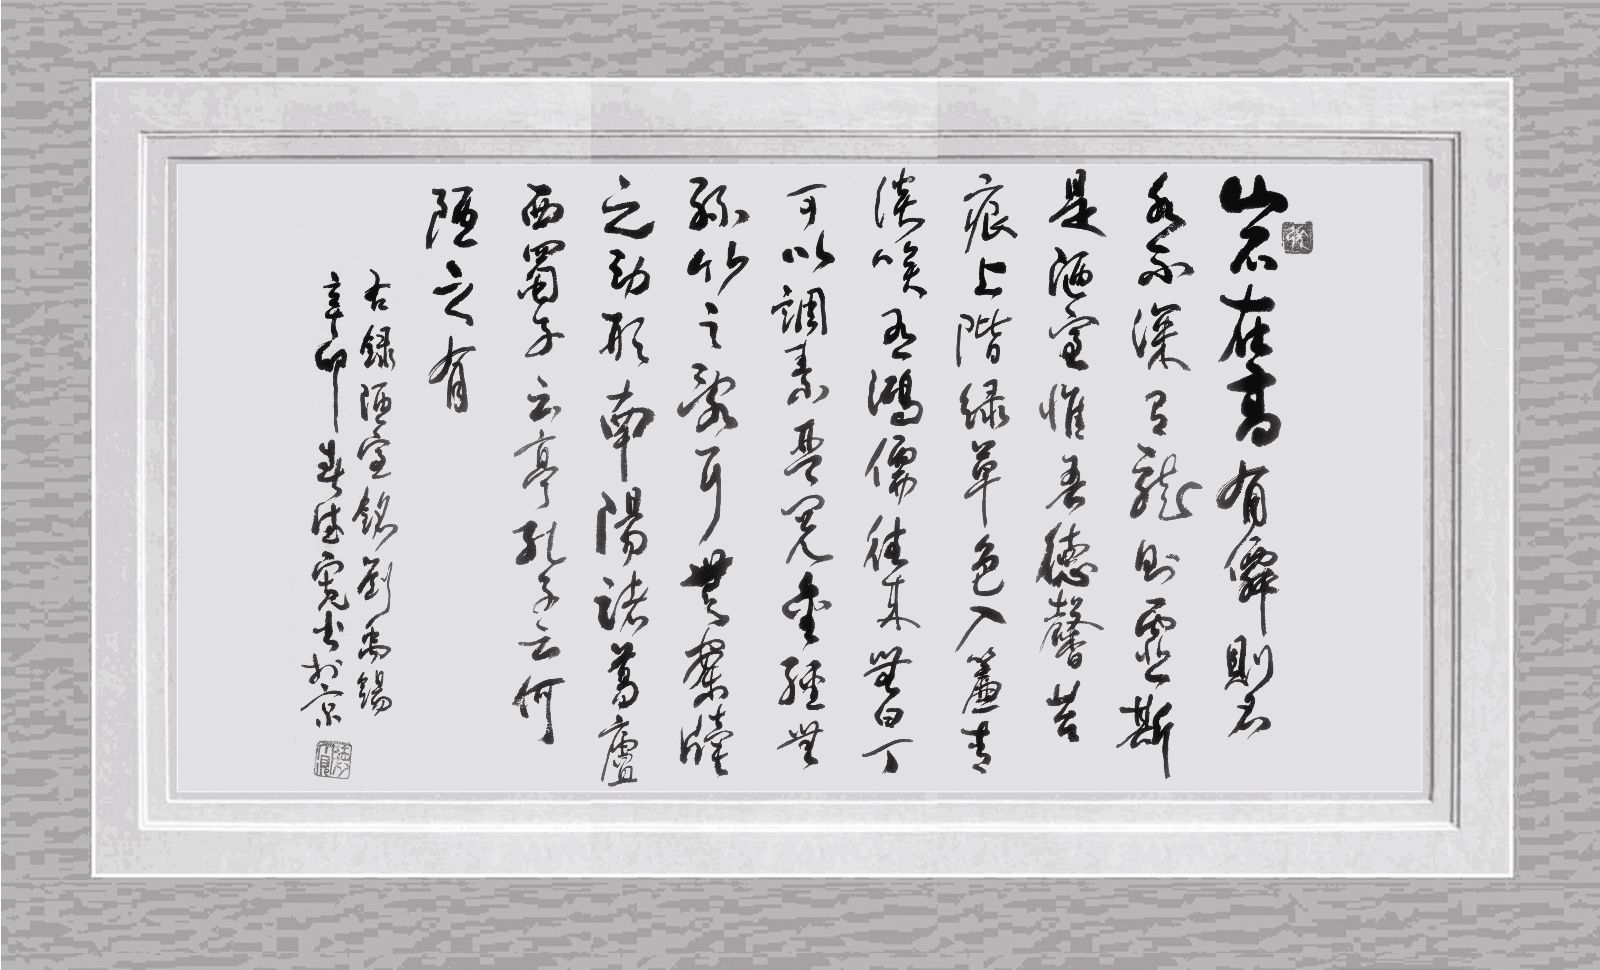 山不在高有僊則名
水不深有龍則靈斯
是陋室惟吾德馨苔
痕上階綠草色入簾青
談咲有鴻儒往來無白丁
可以調素琴閱金經無
絲竹之亂耳無案牘
之勞形南陽諸葛廬
西蜀子云亭孔子云何
陋之有
右錄陋室銘劉禹錫
辛卯春寬书於京